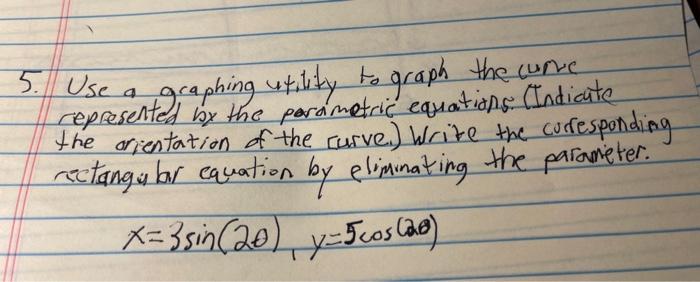 5. Use a graphing utility to graph the curve
represented by the parametric equations (Indicate
the orientation of the curve.) Write the corresponding
rectangular equation by eliminating the parameter.
x=3sin(2θ), y=5cos(2θ)